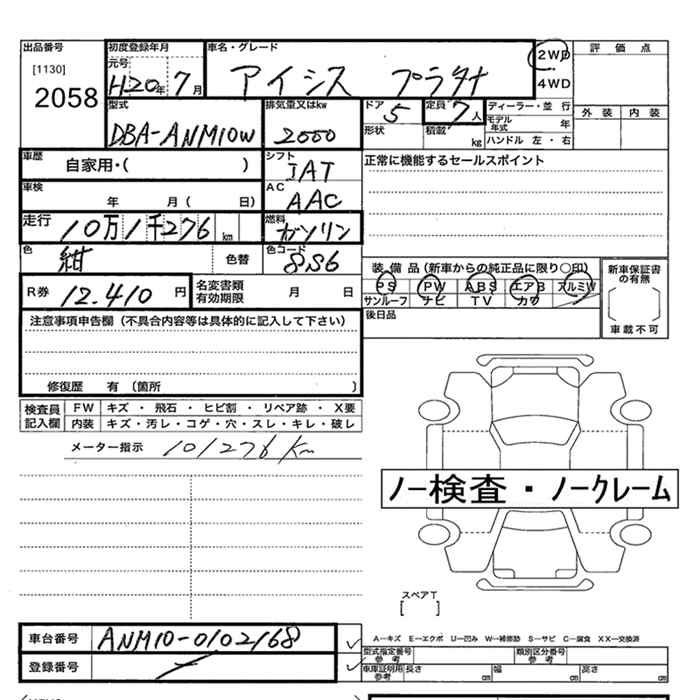 出品番号 初度登録年月 車名・グレード 2WD 評価点
[1130] 元号 H20年 7月 アイシス プラタナ 4WD
2058 型式 排気量又はkw ドア 5 定員 7人 ディーラー・並行 外装 内装
DBA-ANM10W 2000 形状 積載 kg モデル年式 年
ハンドル 左・右
車歴 自家用・( ) シフト IAT 正常に機能するセールスポイント
車検 年 月( 日) AC AAC
走行 10万1千276km 燃料 ガソリン
色 紺 色替 色コード 8S6
装備品(新車からの純正品に限り〇印) 新車保証書の有無
R券 12,410円 名変書類有効期限 月 日 PS PW ABS エアB アルミW
サンルーフ ナビ TV カワ
注意事項申告欄(不具合内容等は具体的に記入して下さい) 後日品 車載不可
修復歴 有(箇所 )
検査員記入欄 FW キズ・飛石・ヒビ割・リペア跡・X要
内装 キズ・汚レ・コゲ・穴・スレ・キレ・破レ
メーター指示 101276Km
ノー検査・ノークレーム
スペアT
[ ]
車台番号 ANM10-0102168
A―キズ E―エクボ U―凹み W―補修跡 S―サビ C―腐食 XX―交換済
型式指定番号参考 類別区分番号参考
登録番号 車庫証明用参考 長さ cm 幅 cm 高さ cm